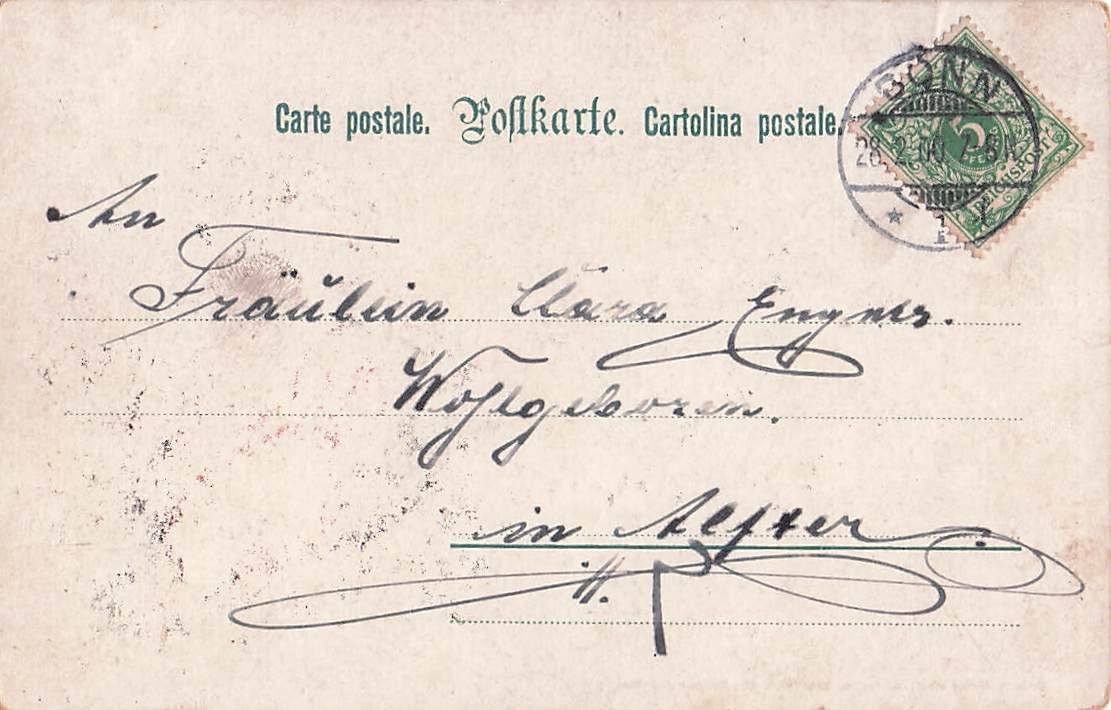 Carte postale. Postkarte. Cartolina postale.
BONN
28.2.00 7-8N
* 1
5
PFENNIG
REICHSPOST
An
Fräulein Clara
Wohlgeboren.
in Alfter.